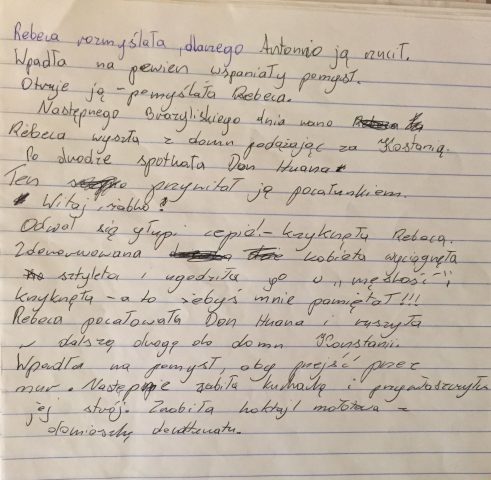 Rebeca rozmyślała, dlaczego Antonnio ją rzucił.
Wpadła na pewien wspaniały pomysł.
Otruje ją - pomyślała Rebeca.
Następnego Brazylijskiego dnia rano
Rebeca wyszła z domu podążając za Kostanią.
Po drodze spotkała Don Huana.
Ten przywitał ją pocałunkiem.
Witaj, żabko!
Odwal się głupi cepie! - krzyknęła Rebeca.
Zdenerwowana kobieta wyciągnęła
sztyleta i ugodziła go w ,,męskość";
krzyknęła - a to żebyś mnie pamiętał!!!
Rebeca pocałowała Don Huana i ruszyła
w dalszą drogę do domu Konstanii.
Wpadła na pomysł, aby przejść przez
mur. Następnie zabiła kucharkę i przywłaszczyła
jej strój. Zrobiła koktajl mołotowa z
domieszką